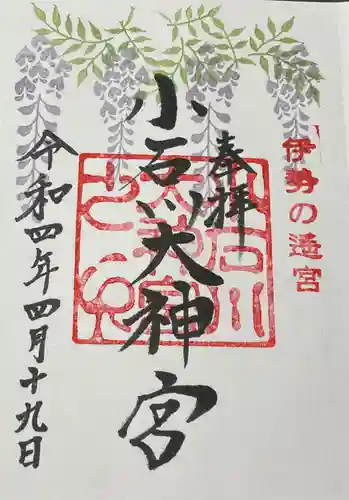 伊勢の遥宮
奉拝
小石川大神宮
令和四年四月十九日